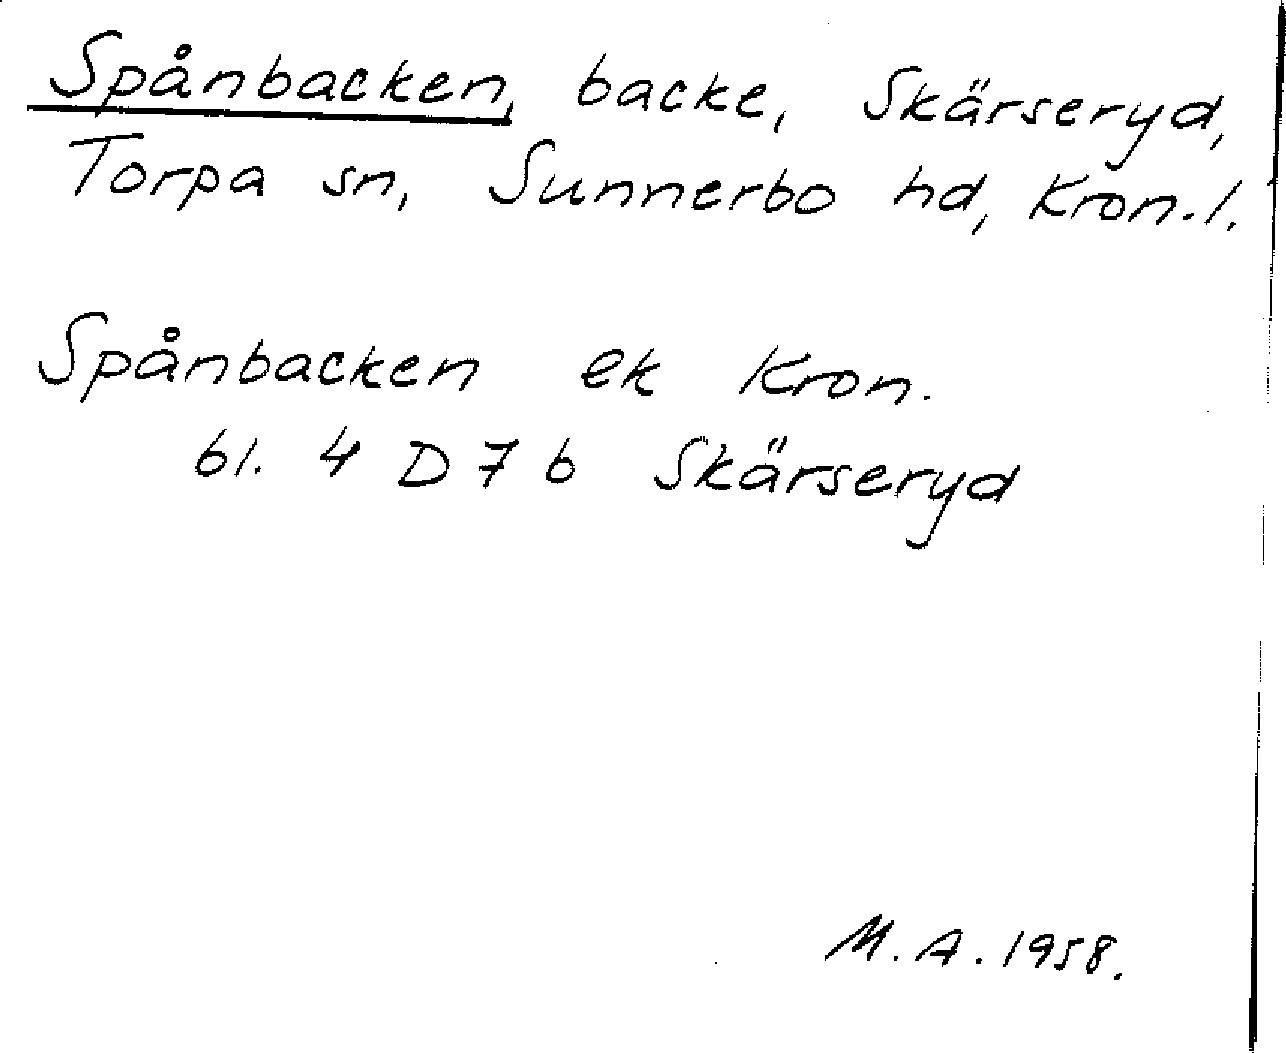 Spånbacken, backe, Skärseryd,
Torpa sn, Sunnerbo hd, Kron.l.
Spånbacken ek Kron.
bl. 4 D 7 b Skärseryd
M.A. 1958.